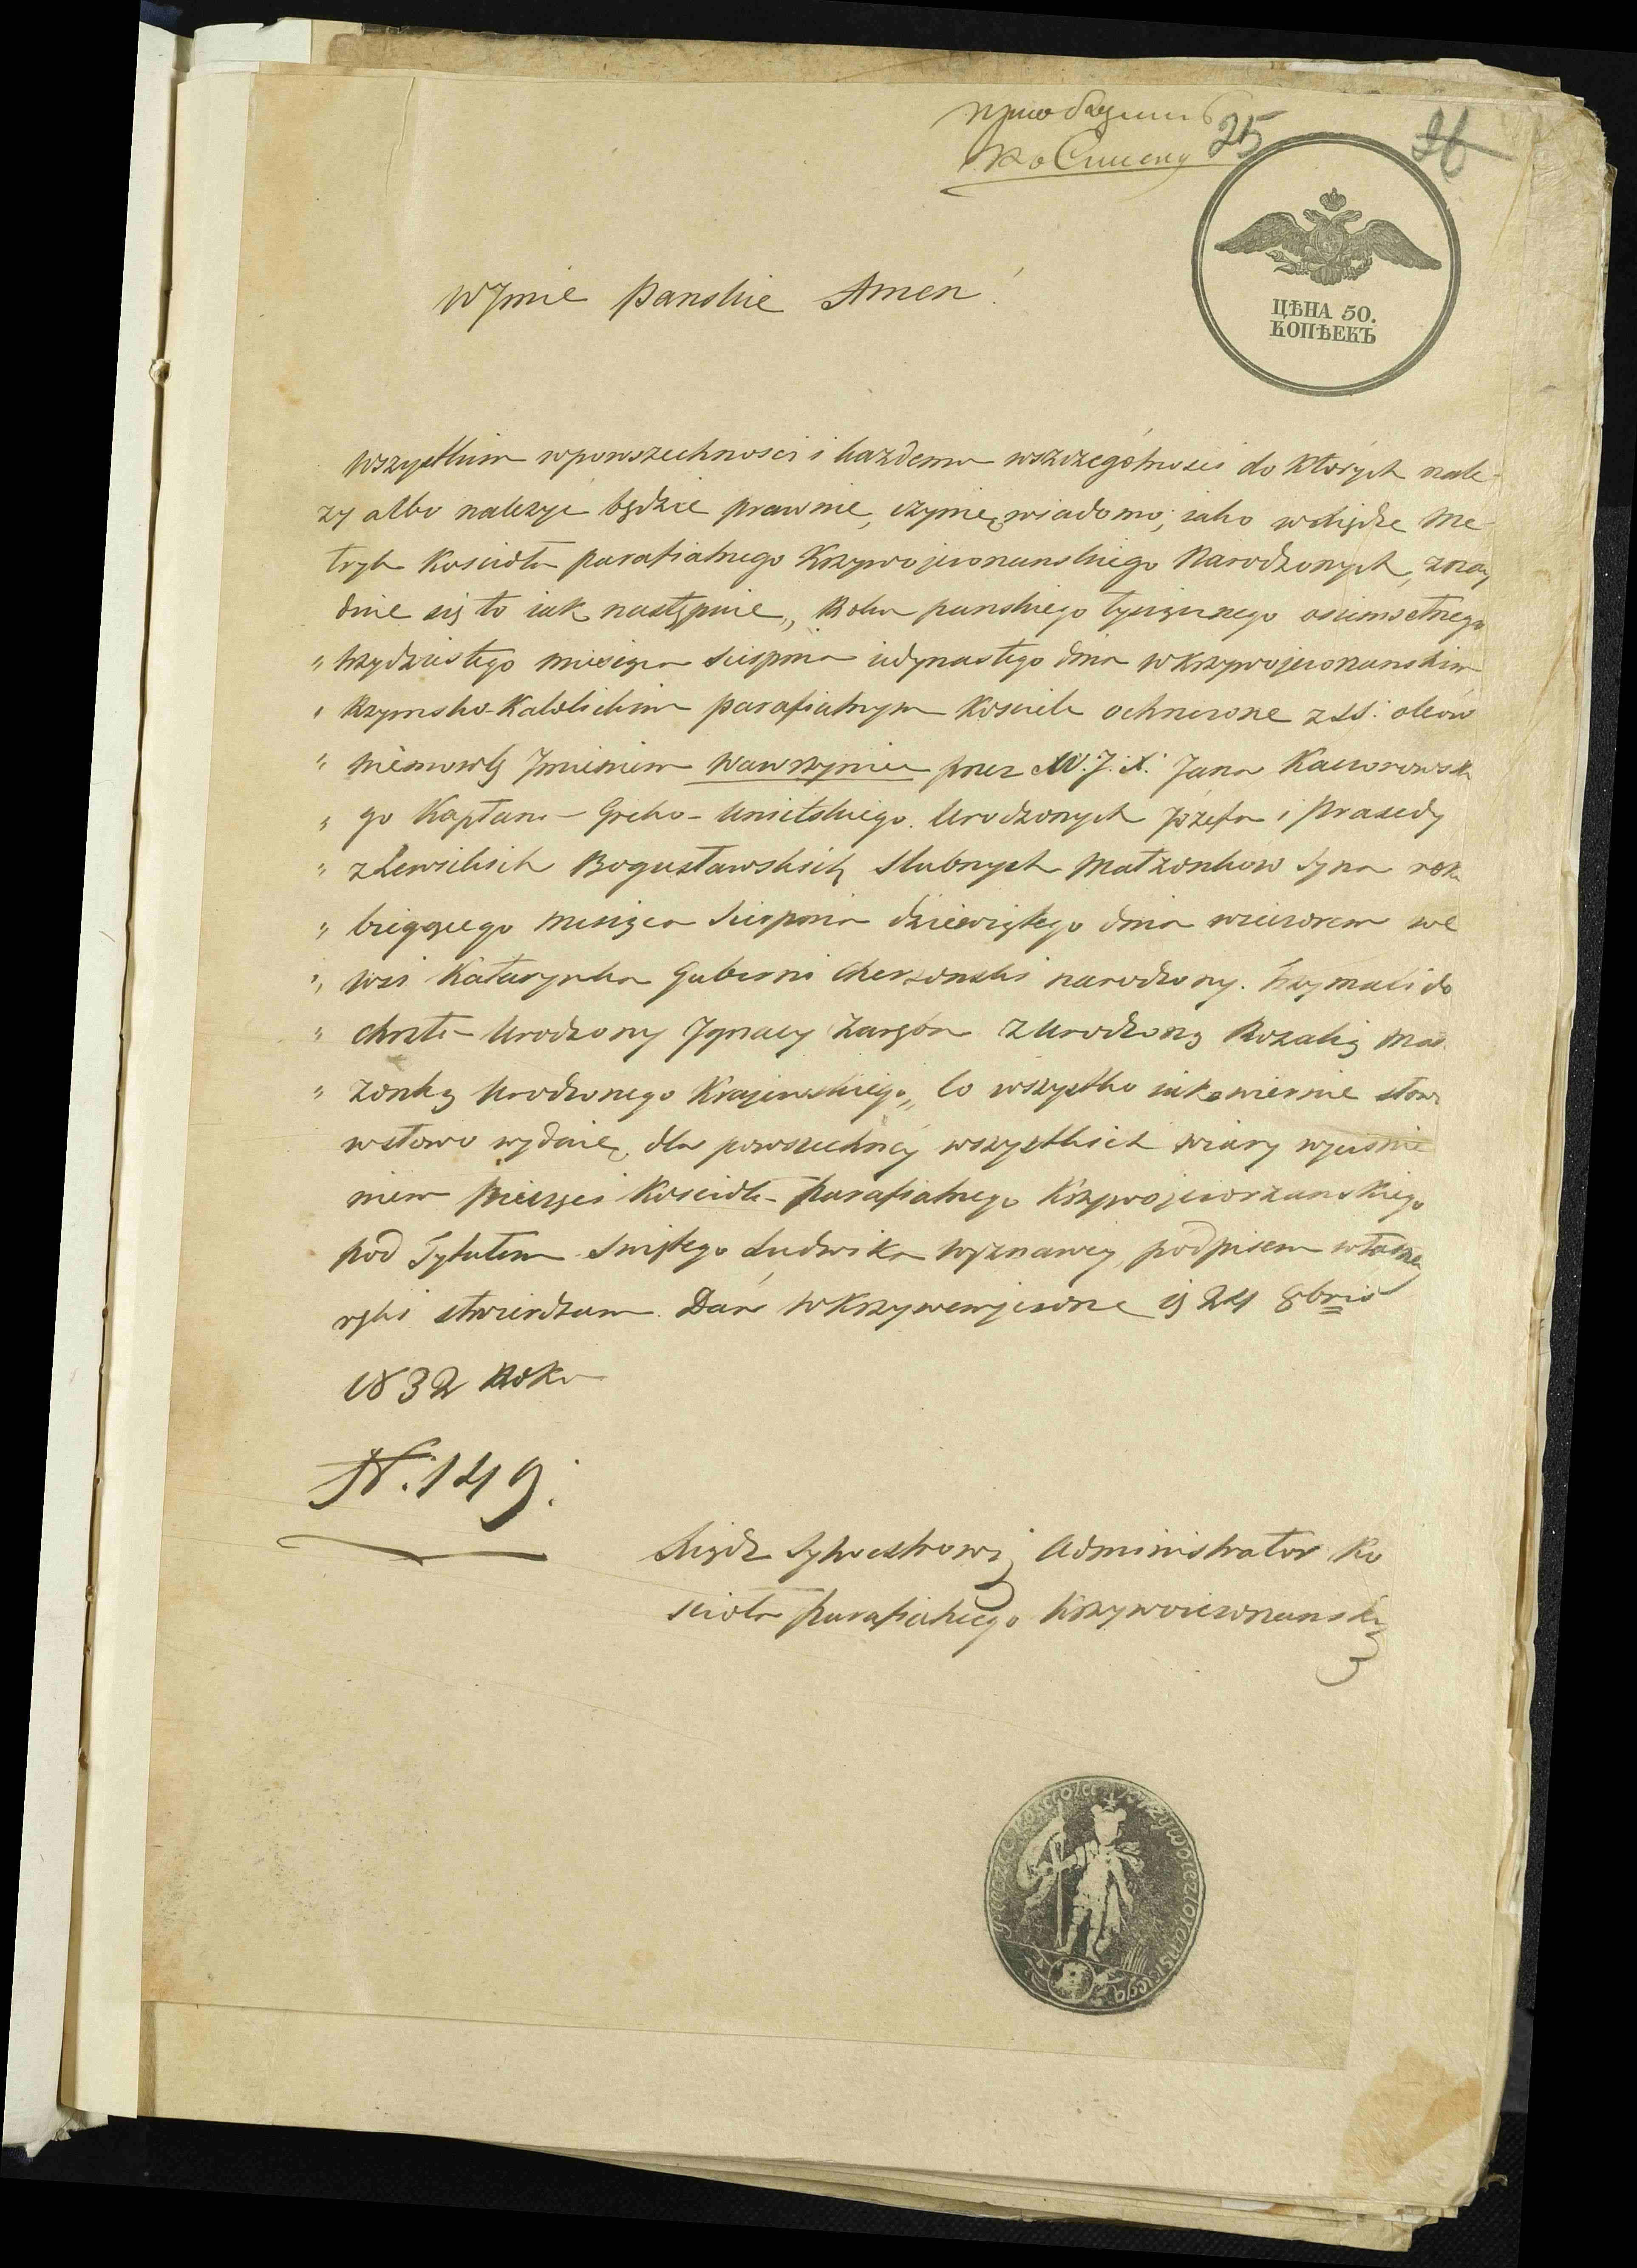 приобщить
къ Списку
25
26
ЦѢНА 50.
КОПѢЕКЪ
W Jmie Panskie Amen!
Wszystkim wpowszechnosci i każdemu wszczegòlnosci do ktòrych nale-
zy albo nalezyć będzie prawnie, czynię wiadomo, iako wksiędze Me-
tryk Kościoła parafialnego Krzywojezioranskiego Narodzonych, znay
duie się to iak następuie „ Roku panskiego tysiącznego osiemsetnego
„ trzydziestego miesiąca Sierpnia iedynastego dnia w Krzywojezioranskim
„ Rzymsko-Katolickim parafialnym Kosciele ochrzczone z SS: oleiow
„ niemowlę Jmieniem Wawrzyniec przez W. J. X. Jana Kaczorowsk
„ go Kapłana Greko-Unietskiego. Urodzonych Jòzefa i Praxedy
„ z Lewickich Bogusławskich Slubnych Małzonkow Syna roku
„ bieggcego miesiąca Sierpnia dziewiątego dnia wieczorem we
„ wsi Katarynka Gubernii Chersonski narodzony. trzymali do
„ chrztu Urodzony Jgnacy z Urodzoną Rozalią Mał
„ zonką Urodzonego Krajewskiego „ Co wszystko iako wiernie słowo
wsłowo wydaię, dla powszechnèy wszystkich wiary wyciśnie
niem Pieczęci Kościoła Parafialnego Krzywojeziorzanskiego
pod Tytułem Swiętego Ludwika Wyznawcy, podpisem własnej
ręki stwierdzam. Dan w Krzywemjeziorze 24 8bris
1832 Roku
N. 149.
Xiądz Administrator Ko
scioła Parafialnego Krzywoiezioranski
Pieczęć Kościoła Krzywoiezioranskiego